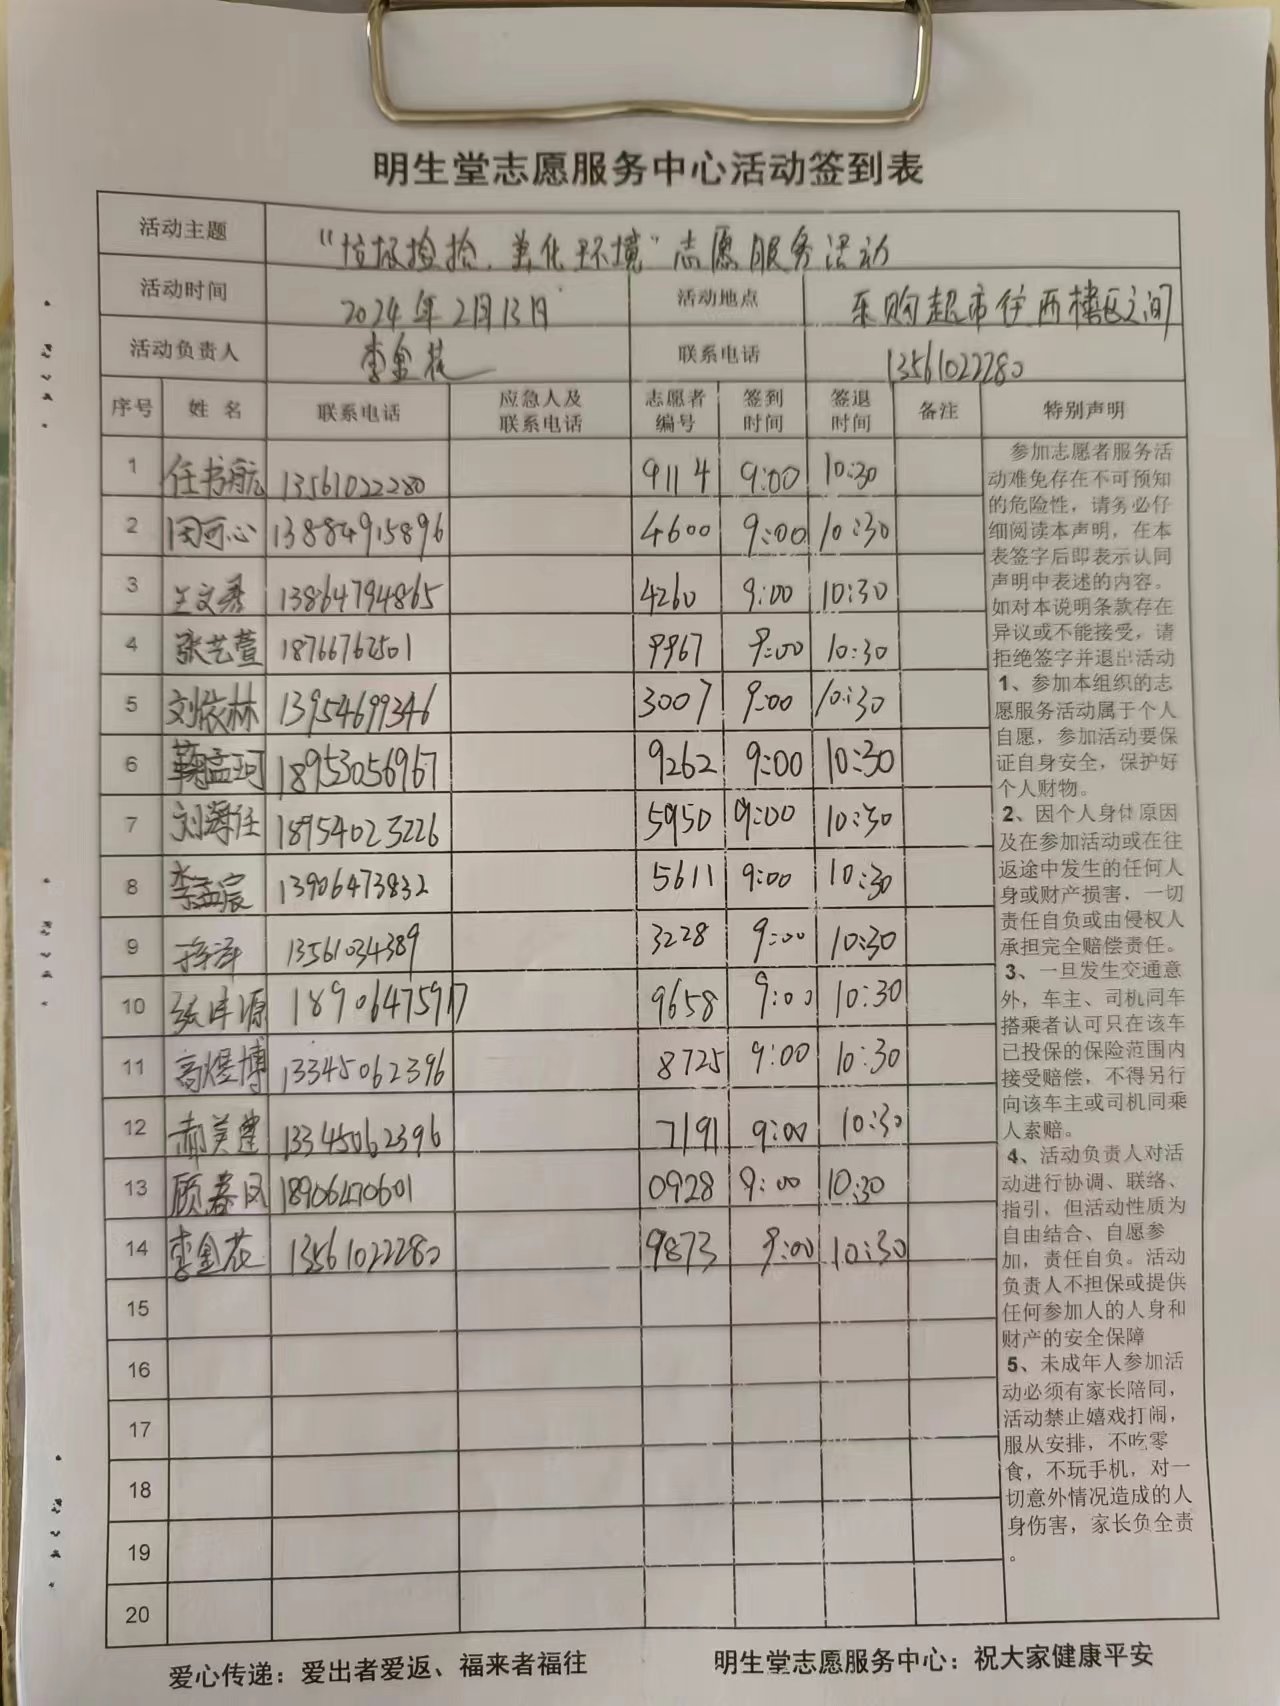 明生堂志愿服务中心活动签到表
活动主题 “垃圾捡拾、美化环境”志愿服务活动
活动时间 2024年2月13日 活动地点 乐购超市住西楼区之间
活动负责人 李金花 联系电话 13561022280
序号 姓名 联系电话 应急人及联系电话 志愿者编号 签到时间 签退时间 备注 特别声明
1 任书航 13561022280 9114 9:00 10:30
2 闵可心 13884915896 4600 9:00 10:30
3 兰文秀 13864794865 4260 9:00 10:30
4 张艺萱 18766762501 9967 9:00 10:30
5 刘依林 13954699346 3007 9:00 10:30
6 鞠孟珂 18953056967 9262 9:00 10:30
7 刘 任 18954023226 5950 9:00 10:30
8 李孟宸 13906473832 5611 9:00 10:30
9 13561034389 3228 9:00 10:30
10 张沣源 18906475917 9658 9:00 10:30
11 高煜博 13345062396 8725 9:00 10:30
12 郝美莲 13345062396 7191 9:00 10:30
13 顾春凤 18906470601 0928 9:00 10:30
14 李金花 13561022280 9873 9:00 10:30
15
16
17
18
19
20
参加志愿者服务活
动难免存在不可预知
的危险性，请务必仔
细阅读本声明，在本
表签字后即表示认同
声明中表述的内容。
如对本说明条款存在
异议或不能接受，请
拒绝签字并退出活动
1、参加本组织的志
愿服务活动属于个人
自愿，参加活动要保
证自身安全，保护好
个人财物。
2、因个人身体原因
及在参加活动或在往
返途中发生的任何人
身或财产损害，一切
责任自负或由侵权人
承担完全赔偿责任。
3、一旦发生交通意
外，车主、司机同车
搭乘者认可只在该车
已投保的保险范围内
接受赔偿，不得另行
向该车主或司机同乘
人索赔。
4、活动负责人对活
动进行协调、联络、
指引，但活动性质为
自由结合、自愿参
加，责任自负。活动
负责人不担保或提供
任何参加人的人身和
财产的安全保障
5、未成年人参加活
动必须有家长陪同，
活动禁止嬉戏打闹，
服从安排，不吃零
食，不玩手机，对一
切意外情况造成的人
身伤害，家长负全责
。
爱心传递：爱出者爱返、福来者福往 明生堂志愿服务中心：祝大家健康平安